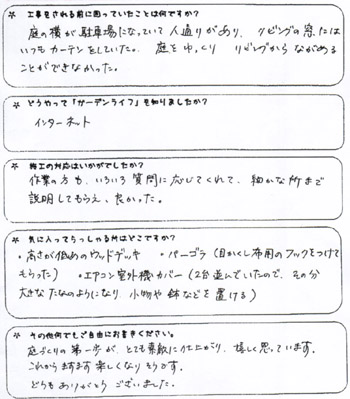 ★ 工事をされる前に困っていたことは何ですか?
庭の横が駐車場になっていて人通りがあり、リビングの窓には
いつもカーテンをしていた。庭をゆっくり リビングからながめる
ことができなかった。
★ どうやって「ガーデンライフ」を知りましたか?
インターネット
★ 施工の対応はいかがでしたか?
作業の方も、いろいろ質問に応じてくれて、細かな所まで
説明してもらえ、良かった。
★ 気に入ってらっしゃる所はどこですか?
・高さが低めのウッドデッキ ・パーゴラ(目かくし布用のフックをつけて
もらった) ・エアコン室外機カバー(2台並んでいたので、その分
大きなたなのようになり、小物や鉢などを置ける)
★ その他何でもご自由にお書きください。
庭づくりの第一歩が、とても素敵に仕上がり、嬉しく思っています。
これからますます楽しくなりそうです。
どうもありがとうございました。